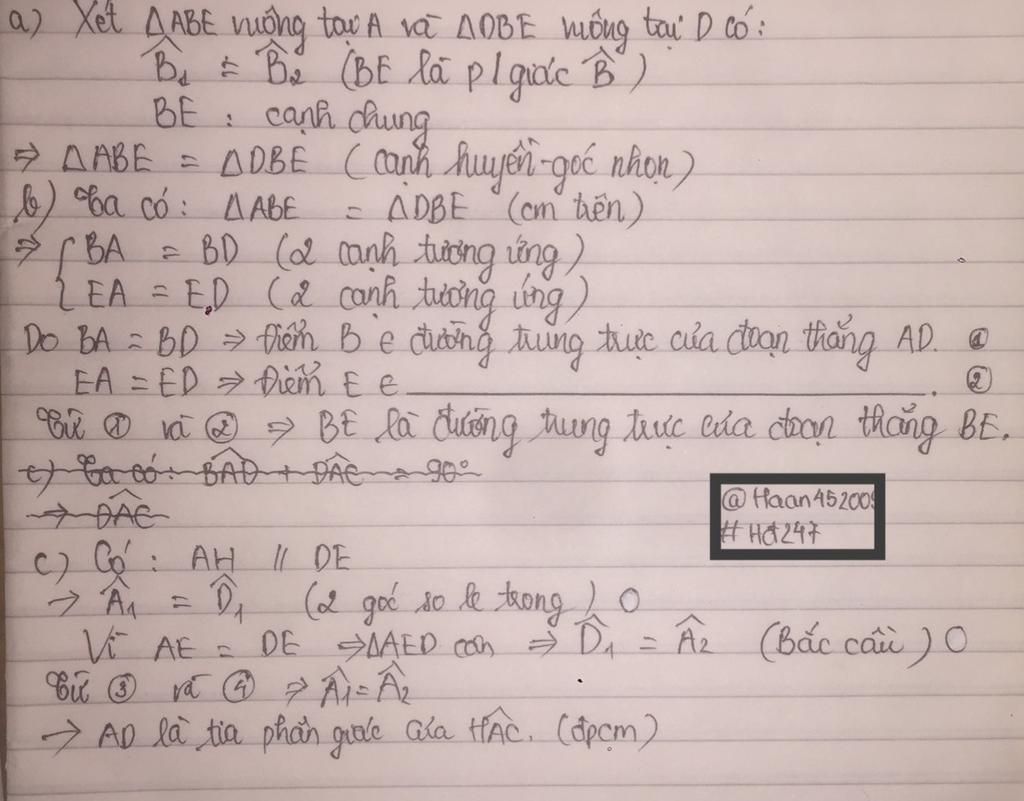 a) Xét ΔABE vuông tại A và ΔDBE vuông tại D có:
B̂₁ = B̂₂ (BE là p/giác B̂)
BE : cạnh chung
⇒ ΔABE = ΔDBE (cạnh huyền-góc nhọn)
b) Ta có: ΔABE = ΔDBE (cm trên)
⇒ { BA = BD (2 cạnh tương ứng)
EA = ED (2 cạnh tương ứng)
Do BA = BD ⇒ điểm B ∈ đường trung trực của đoạn thẳng AD. ①
EA = ED ⇒ Điểm E ∈ ____________________. ②
Từ ① và ② ⇒ BE là đường trung trực của đoạn thẳng BE.
c) Ta có: BAD̂ + DAĈ = 90°
→ DAĈ
@Haan452009
# Hd247
c) Có : AH // DE
→ Â₁ = D̂₁ (2 góc so le trong) O
Vì AE = DE ⇒ ΔAED cân ⇒ D̂₁ = Â₂ (Bắc cầu) O
Từ ③ và ④ ⇒ Â₁ = Â₂
→ AD là tia phân giác của HAĈ. (đpcm)